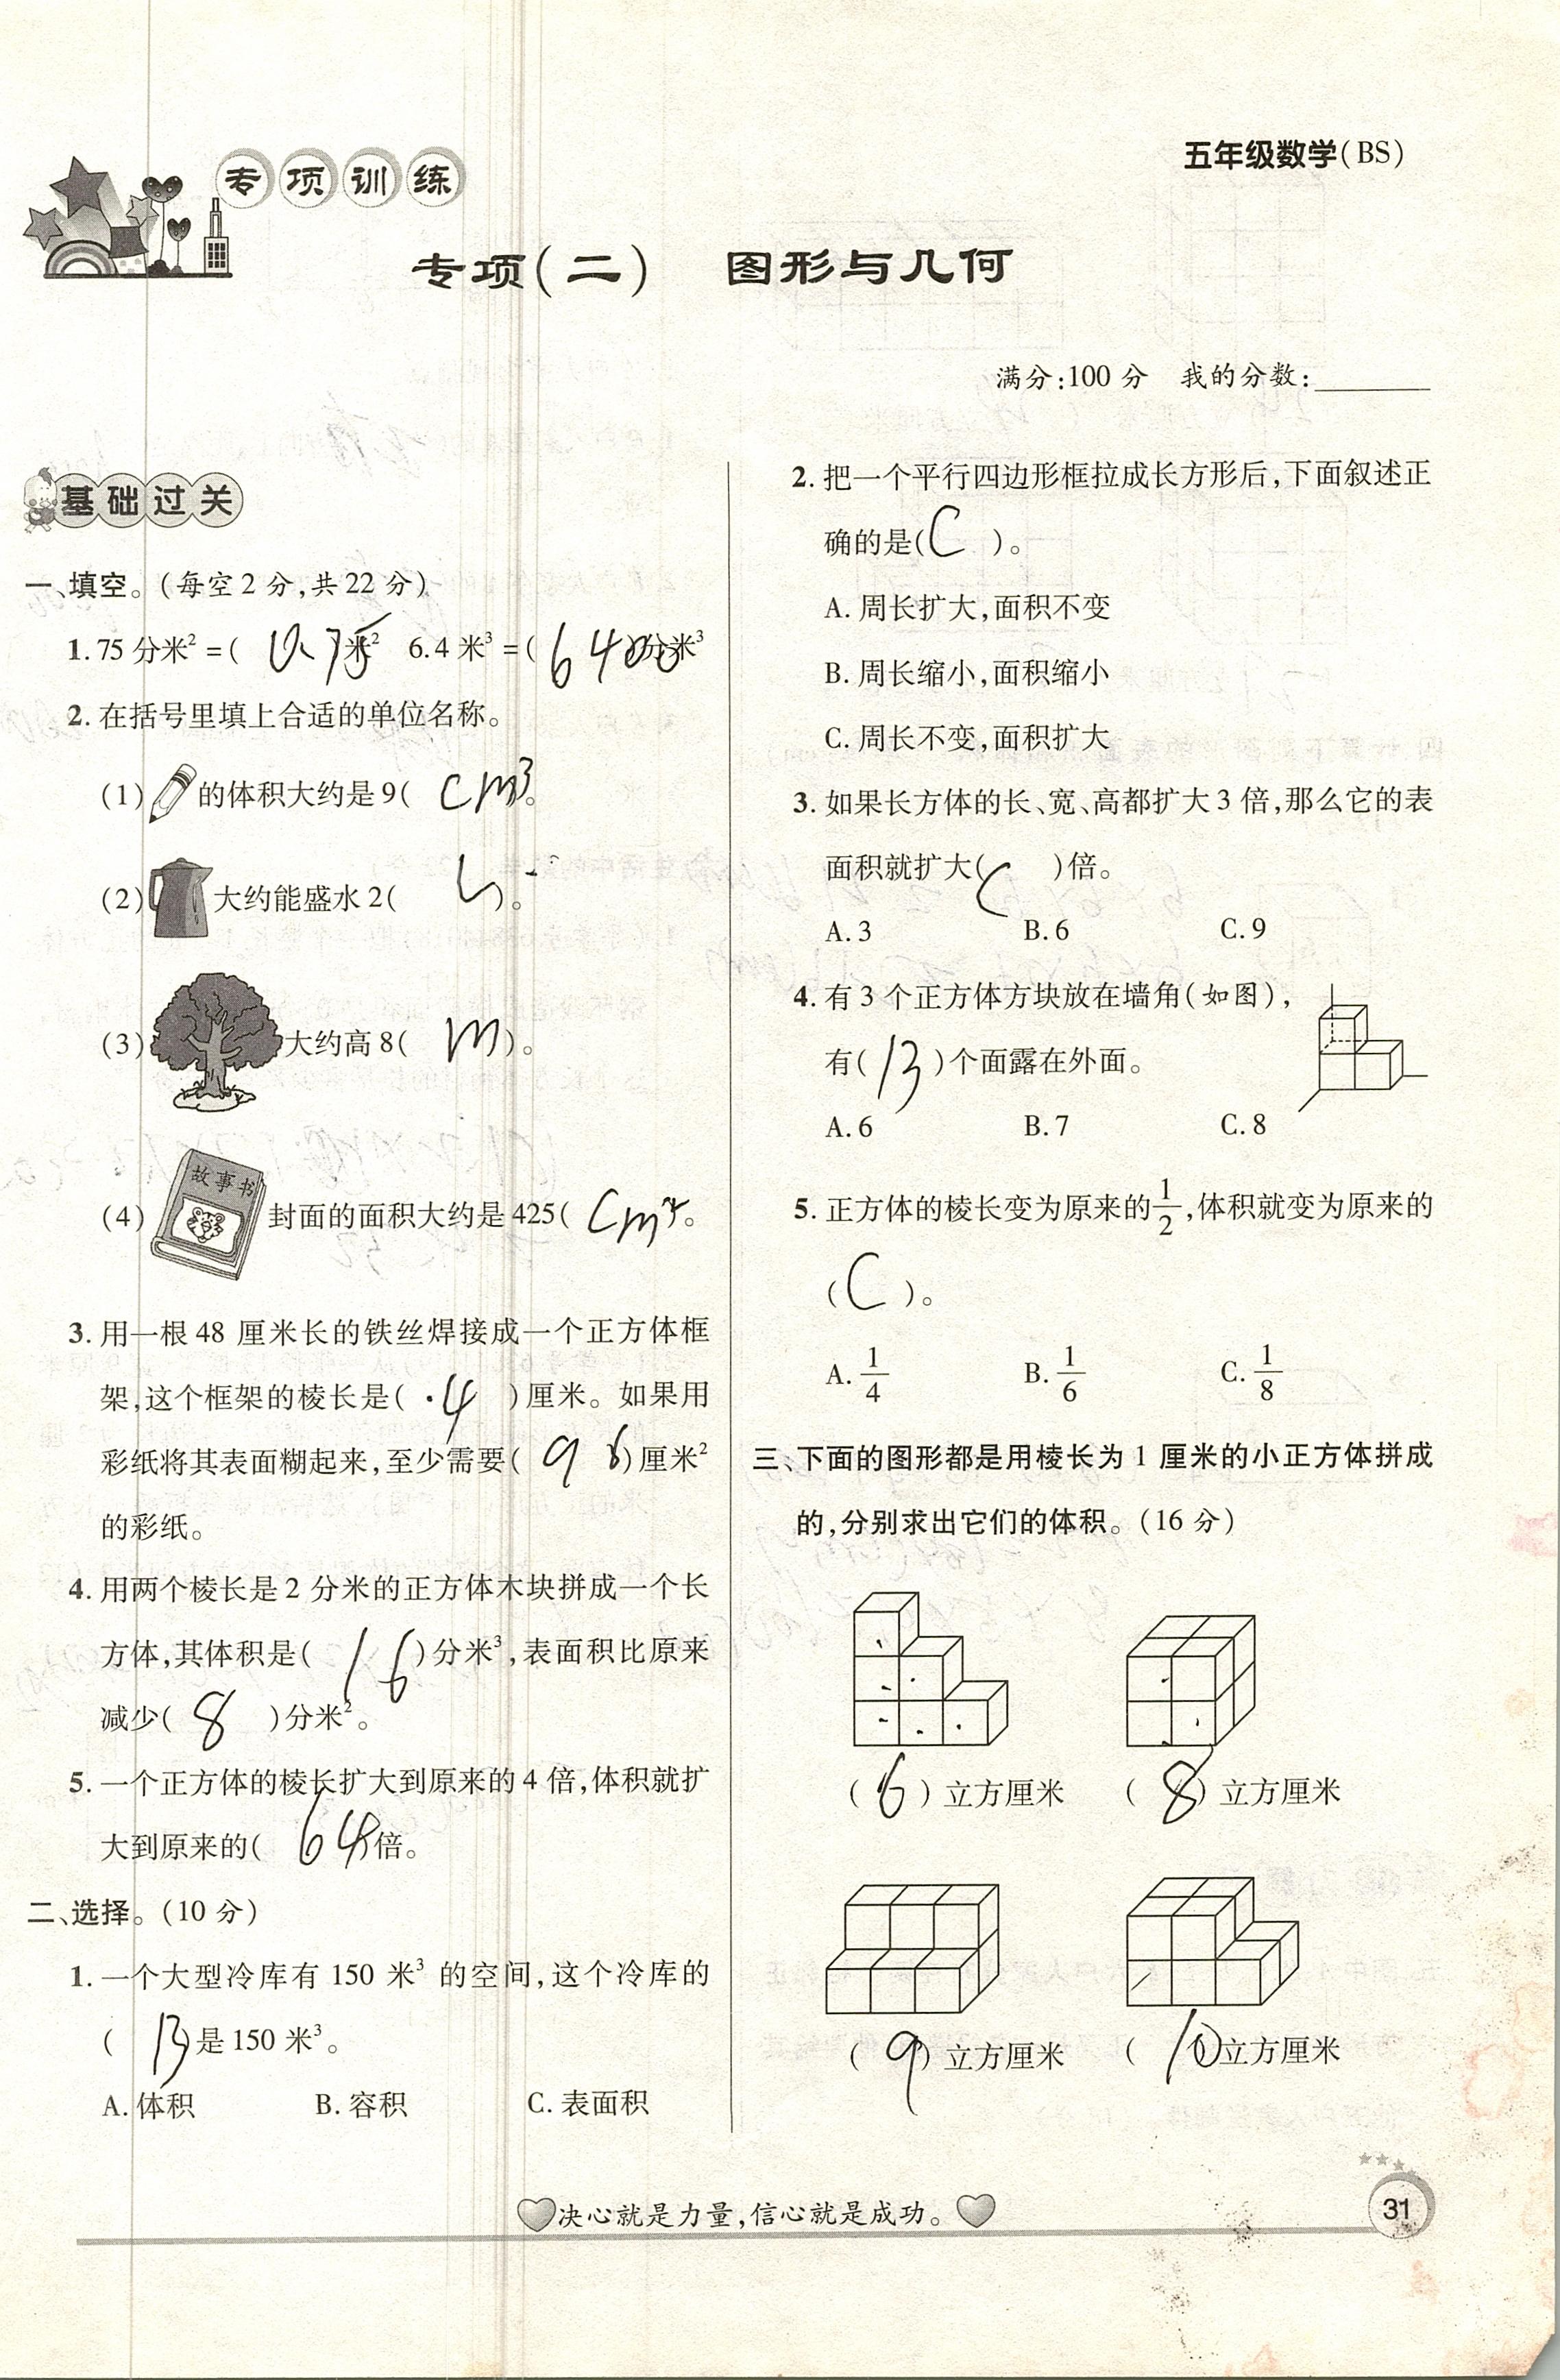 专项训练
五年级数学(BS)
专项(二) 图形与几何
满分:100分 我的分数:
基础过关
一、填空。(每空2分,共22分)
1. 75分米²=( 0.75 米² 6.4米³=( 6400 )分米³
2. 在括号里填上合适的单位名称。
(1) 的体积大约是9( cm³ 。
(2) 大约能盛水2( )。
(3) 大约高8( m )。
故事书
(4) 封面的面积大约是425( cm² 。
3. 用一根48厘米长的铁丝焊接成一个正方体框
架,这个框架的棱长是( 4 )厘米。如果用
彩纸将其表面糊起来,至少需要( 96 )厘米²
的彩纸。
4. 用两个棱长是2分米的正方体木块拼成一个长
方体,其体积是( 16 )分米³,表面积比原来
减少( 8 )分米²。
5. 一个正方体的棱长扩大到原来的4倍,体积就扩
大到原来的( 64 )倍。
二、选择。(10分)
1. 一个大型冷库有150米³的空间,这个冷库的
( B )是150米³。
A. 体积 B. 容积 C. 表面积
2. 把一个平行四边形框拉成长方形后,下面叙述正
确的是( C )。
A. 周长扩大,面积不变
B. 周长缩小,面积缩小
C. 周长不变,面积扩大
3. 如果长方体的长、宽、高都扩大3倍,那么它的表
面积就扩大( C )倍。
A. 3 B. 6 C. 9
4. 有3个正方体方块放在墙角(如图),
有( B )个面露在外面。
A. 6 B. 7 C. 8
5. 正方体的棱长变为原来的1/2,体积就变为原来的
( C )。
A. 1/4 B. 1/6 C. 1/8
三、下面的图形都是用棱长为1厘米的小正方体拼成
的,分别求出它们的体积。(16分)
( 6 )立方厘米 ( 8 )立方厘米
( 9 )立方厘米 ( 10 )立方厘米
决心就是力量,信心就是成功。
31